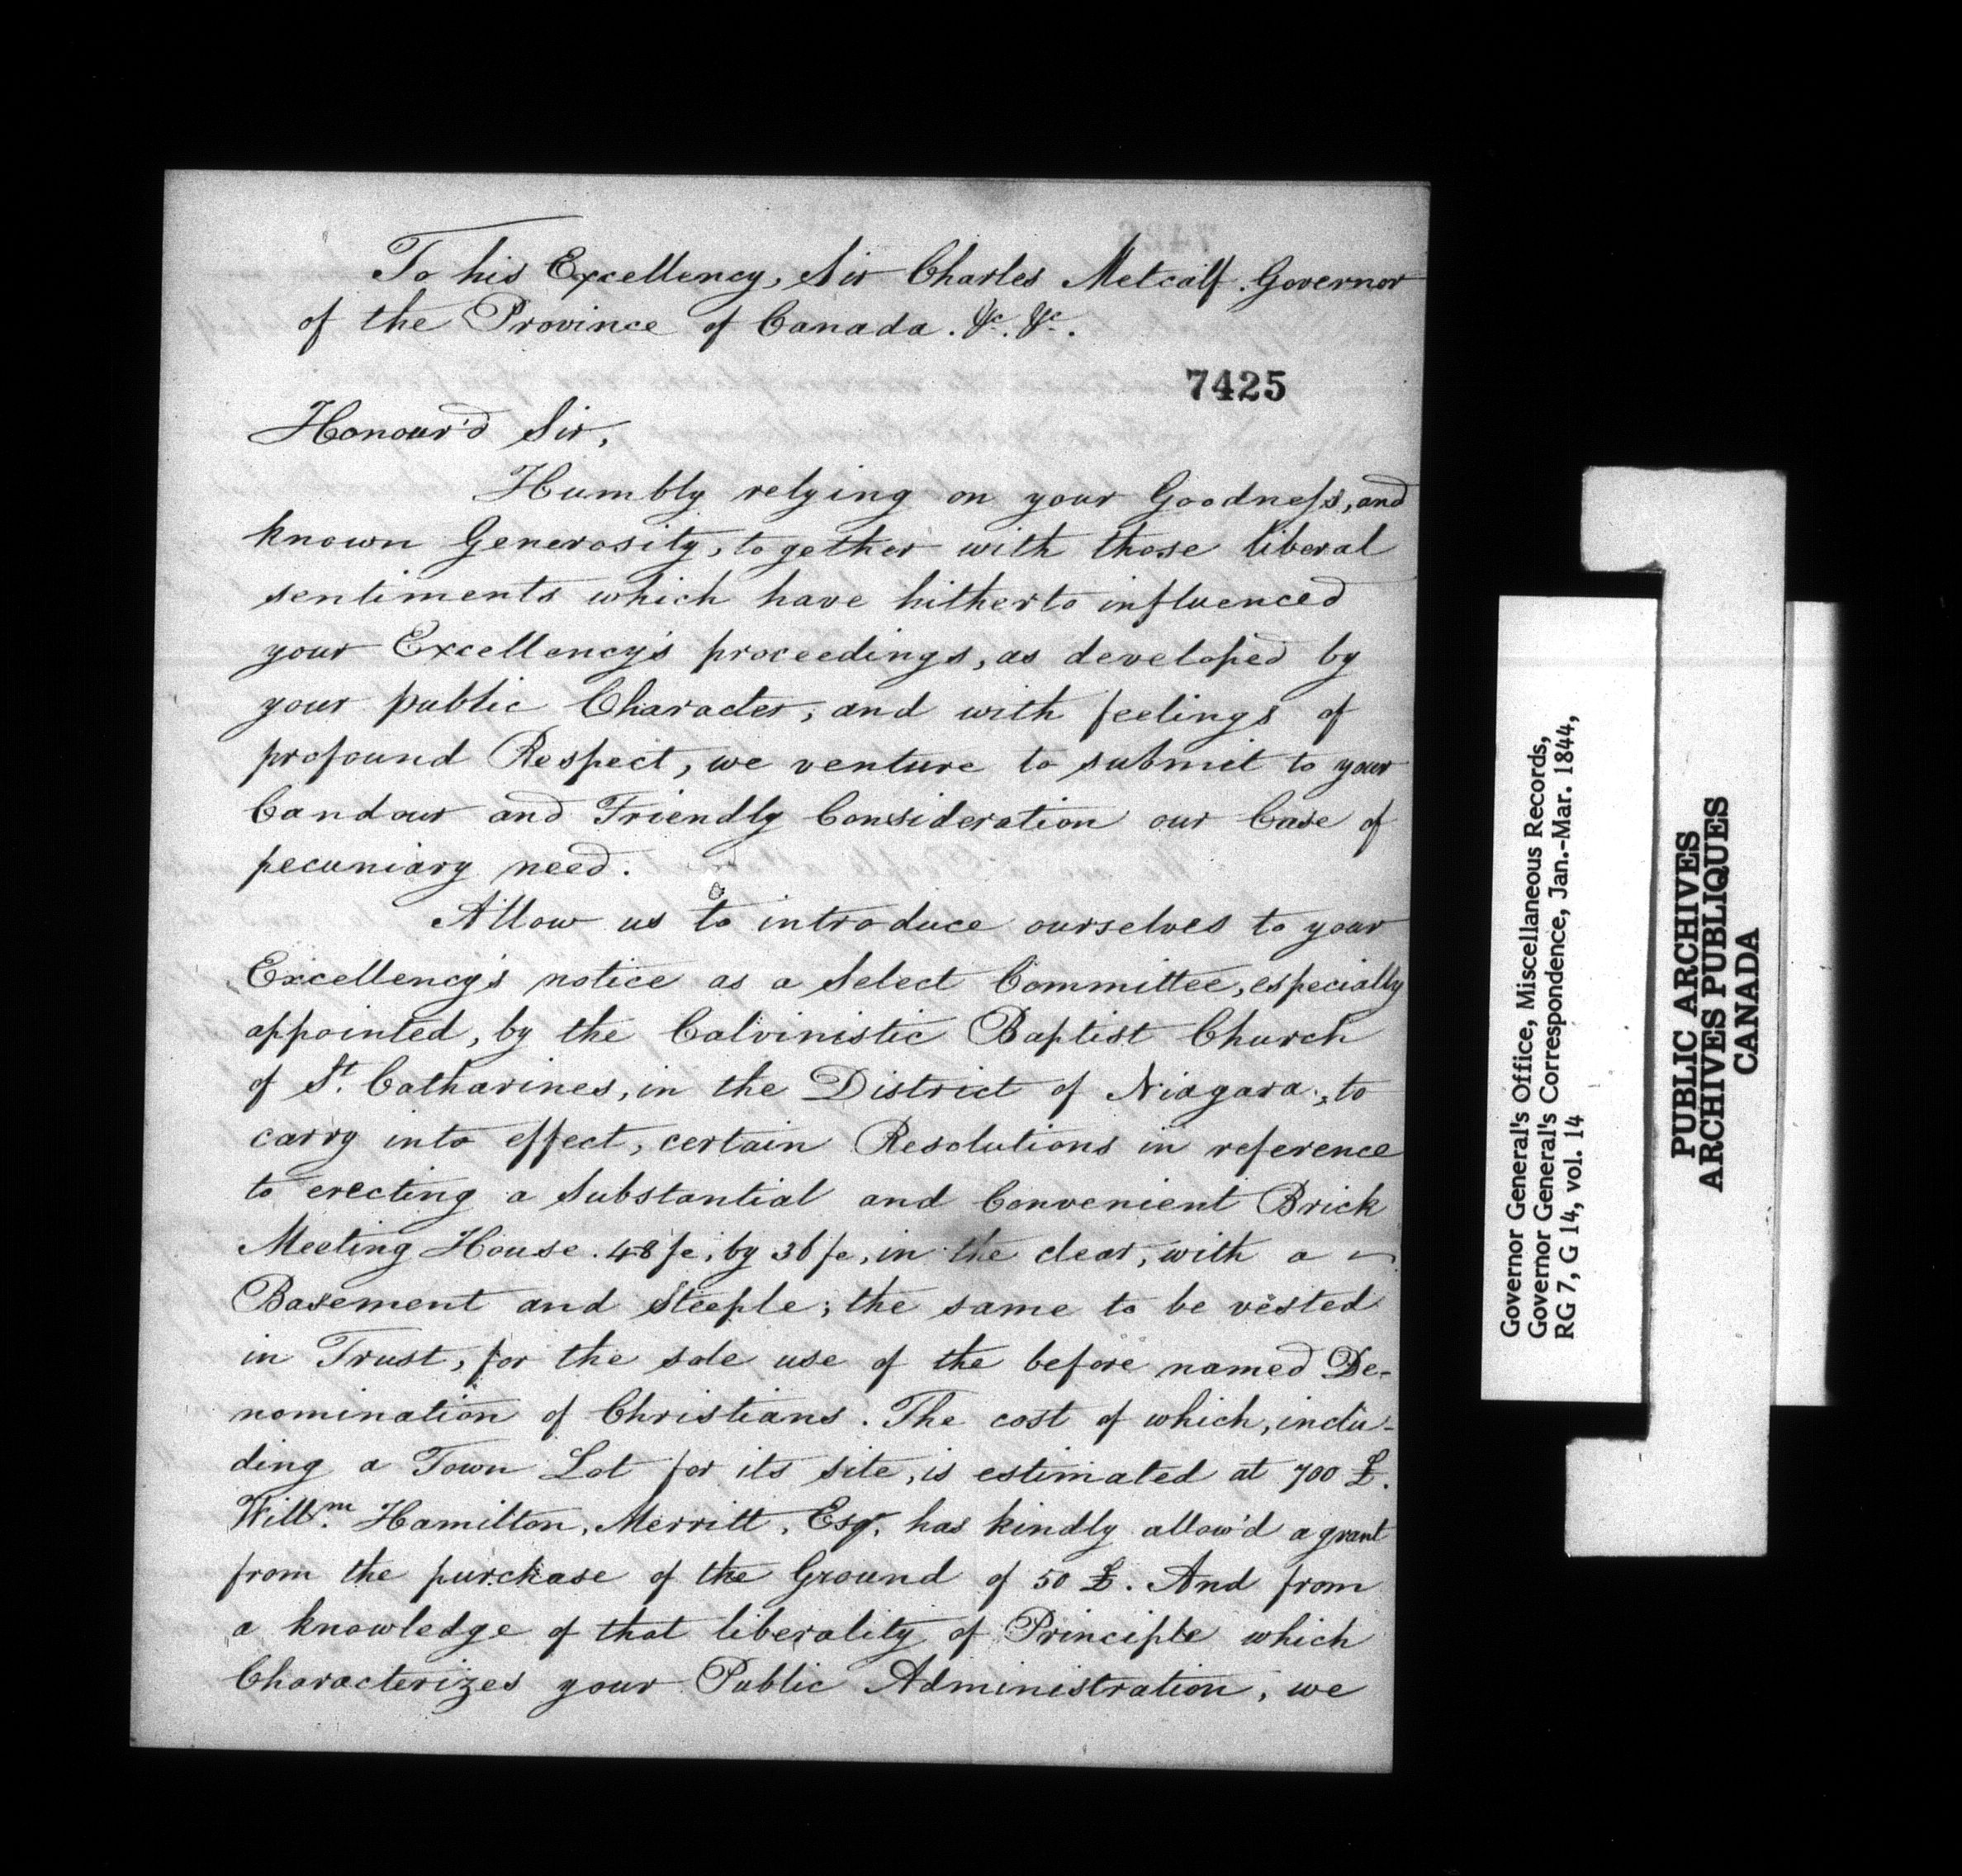 To his Excellency, Sir Charles Metcalf. Governor
of the Province of Canada. &c. &c.
7425
Honour'd Sir,
Humbly relying on your Goodness, and
known Generosity, together with those liberal
sentiments which have hitherto influenced
your Excellency's proceedings, as developed by
your public Character, and with feelings of
profound Respect, we venture to submit to your
Candour and Friendly Consideration our Case of
pecuniary need.
Allow us to introduce ourselves to your
Excellency's notice as a Select Committee, especially
appointed, by the Calvinistic Baptist Church
of St. Catharines, in the District of Niagara, to
carry into effect, certain Resolutions in reference
to erecting a Substantial and Convenient Brick
Meeting House. 48 fe, by 36 fe, in the clear, with a
Basement and Steeple; the same to be vested
in Trust, for the sole use of the before named De-
nomination of Christians. The cost of which, inclu-
ding a Town Lot for its site, is estimated at 700 £.
Willm. Hamilton, Merritt, Esq. has kindly allow'd a grant
from the purchase of the Ground of 50 £. And from
a knowledge of that liberality of Principle which
Characterizes your Public Administration, we
Governor General's Office, Miscellaneous Records,
Governor General's Correspondence, Jan.-Mar. 1844,
RG 7, G 14, vol. 14
PUBLIC ARCHIVES
ARCHIVES PUBLIQUES
CANADA